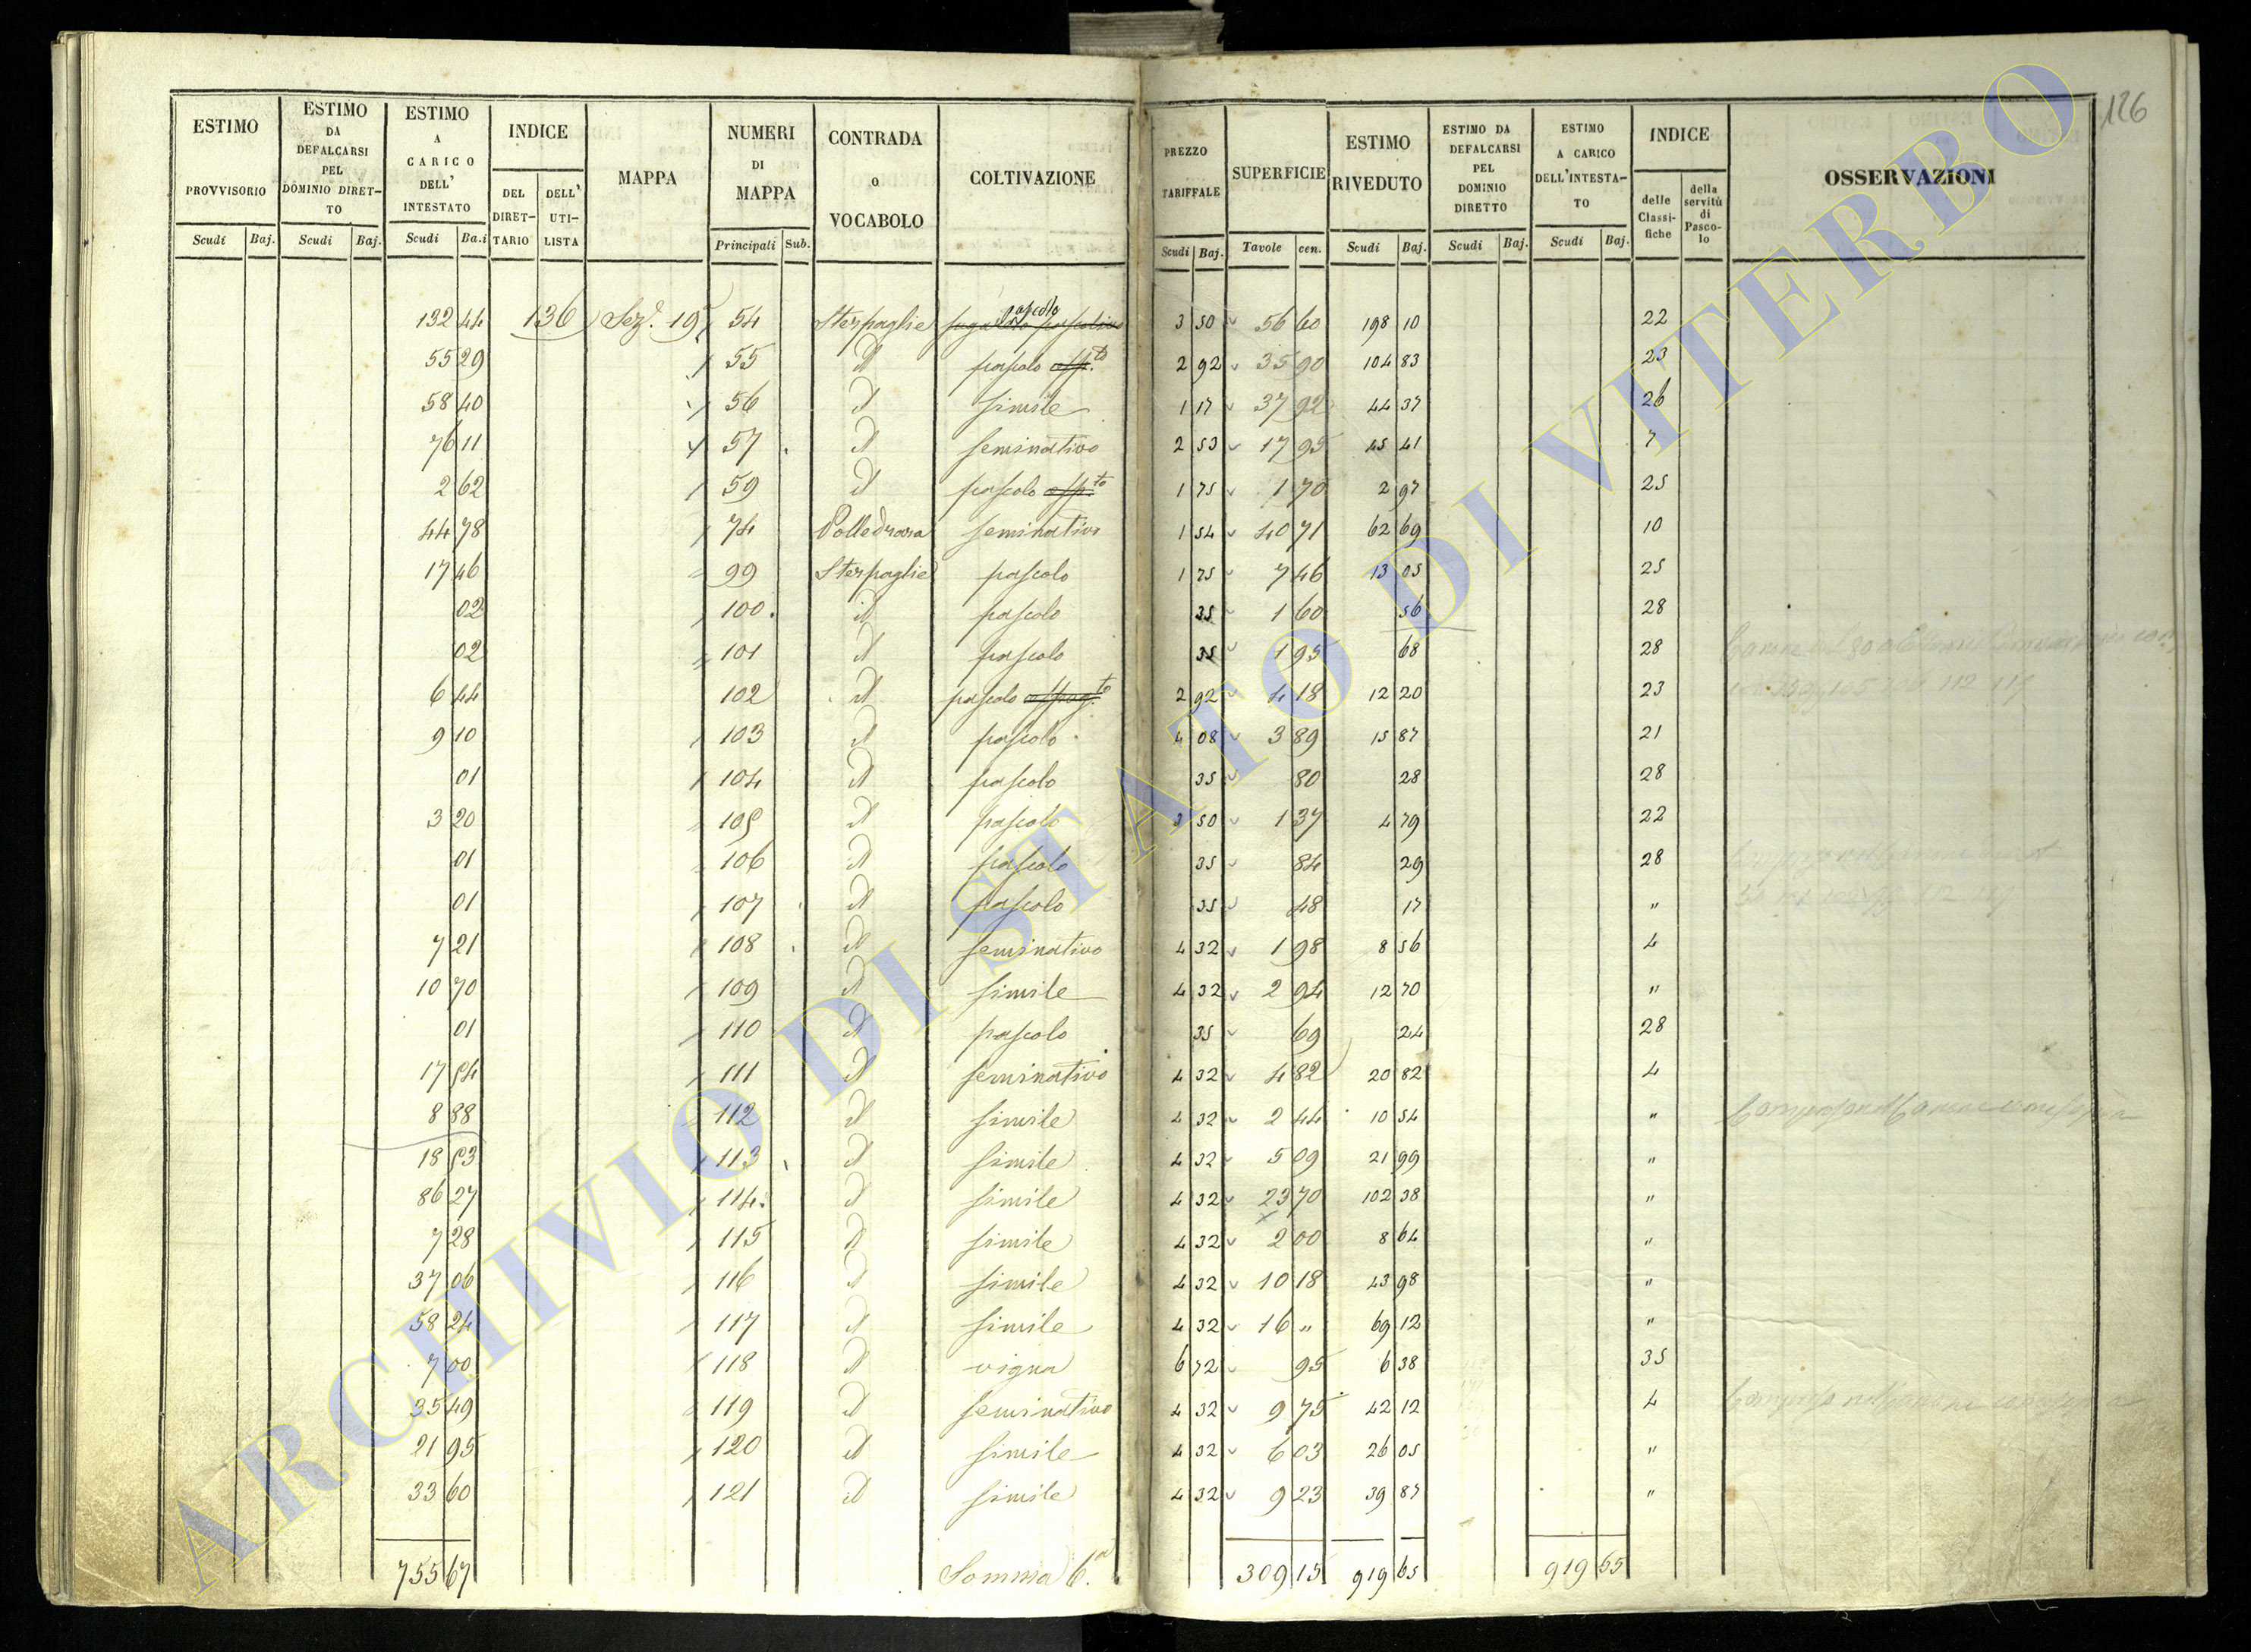 126
ESTIMO PROVVISORIO | ESTIMO DA DEFALCARSI PEL DOMINIO DIRET-TO | ESTIMO A CARICO DELL' INTESTATO | INDICE | MAPPA | NUMERI DI MAPPA | CONTRADA o VOCABOLO | COLTIVAZIONE | PREZZO TARIFFALE | SUPERFICIE | ESTIMO RIVEDUTO | ESTIMO DA DEFALCARSI PEL DOMINIO DIRETTO | ESTIMO A CARICO DELL'INTESTA-TO | INDICE | OSSERVAZIONI
Scudi | Baj. | Scudi | Baj. | Scudi | Ba.i | DEL DIRET-TARIO | DELL' UTI-LISTA | Principali | Sub. | Scudi | Baj. | Tavole | cen. | Scudi | Baj. | Scudi | Baj. | Scudi | Baj. | delle Classi-fiche | della servitù di Pasco-lo
132 44 | 136 | Sez. 19 | 54 | Sterpaglie | pascolo | 3 50 | 56 60 | 198 10 | 22
55 29 | 55 | id | pascolo | 2 92 | 35 90 | 104 83 | 23
58 40 | 56 | id | simile | 1 17 | 37 92 | 44 37 | 26
76 11 | 57 | id | seminativo | 2 53 | 17 95 | 45 41 | 7
2 62 | 59 | id | pascolo | 1 75 | 1 70 | 2 97 | 25
44 78 | 74 | Polledrara | seminativo | 1 54 | 40 71 | 62 69 | 10
17 46 | 99 | Sterpaglie | pascolo | 1 75 | 7 46 | 13 05 | 25
02 | 100 | id | pascolo | 35 | 1 60 | 56 | 28
02 | 101 | id | pascolo | 35 | 1 95 | 68 | 28
6 44 | 102 | id | pascolo | 2 92 | 4 18 | 12 20 | 23
9 10 | 103 | id | pascolo | 4 08 | 3 89 | 15 87 | 21
01 | 104 | id | pascolo | 35 | 80 | 28 | 28
3 20 | 105 | id | pascolo | 3 50 | 1 37 | 4 79 | 22
01 | 106 | id | pascolo | 35 | 84 | 29 | 28
01 | 107 | id | pascolo | 35 | 48 | 17 | "
7 21 | 108 | id | seminativo | 4 32 | 1 98 | 8 56 | 4
10 70 | 109 | id | simile | 4 32 | 2 94 | 12 70 | "
01 | 110 | id | pascolo | 35 | 69 | 24 | 28
17 54 | 111 | id | seminativo | 4 32 | 4 82 | 20 82 | 4
8 88 | 112 | id | simile | 4 32 | 2 44 | 10 54 | "
18 53 | 113 | id | simile | 4 32 | 5 09 | 21 99 | "
86 27 | 114 | id | simile | 4 32 | 23 70 | 102 38 | "
7 28 | 115 | id | simile | 4 32 | 2 00 | 8 64 | "
37 06 | 116 | id | simile | 4 32 | 10 18 | 43 98 | "
58 24 | 117 | id | simile | 4 32 | 16 " | 69 12 | "
7 00 | 118 | id | vigna | 6 72 | 95 | 6 38 | 35
35 49 | 119 | id | seminativo | 4 32 | 9 75 | 42 12 | 4
21 95 | 120 | id | simile | 4 32 | 6 03 | 26 05 | "
33 60 | 121 | id | simile | 4 32 | 9 23 | 39 87 | "
755 67 | Somma 6.a | 309 15 | 919 65 | 919 55
ARCHIVIO DI STATO DI VITERBO